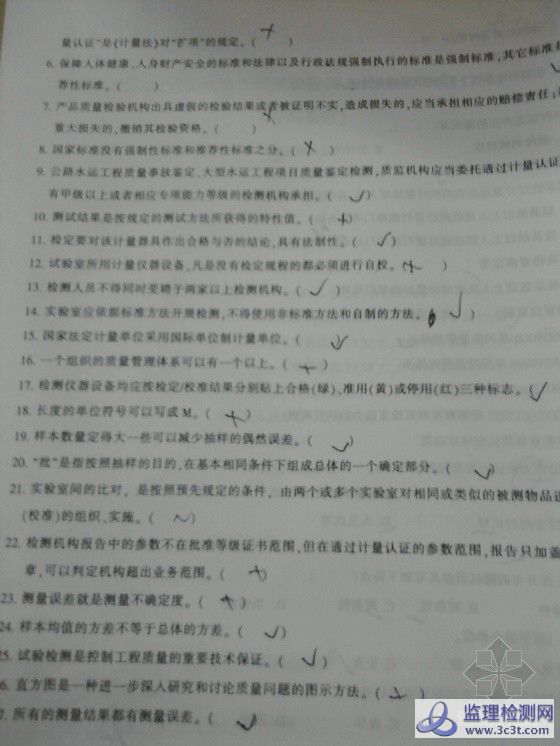 量认证"是《计量法》对"扩项"的规定。( × )
6. 保障人体健康、人身财产安全的标准和法律以及行政法规强制执行的标准是强制标准,其它标准
荐性标准。( )
7. 产品质量检验机构出具虚假的检验结果或者被证明不实,造成损失的,应当承担相应的赔偿责任;
重大损失的,撤销其检验资格。( × )
8. 国家标准没有强制性标准和推荐性标准之分。( × )
9. 公路水运工程质量事故鉴定、大型水运工程项目质量鉴定检测,质监机构应当委托通过计量认证
有甲级以上或者相应专项能力等级的检测机构承担。( √ )
10. 测试结果是按规定的测试方法所获得的特性值。( × )
11. 检定要对该计量器具作出合格与否的结论,具有法制性。( √ )
12. 试验室所用计量仪器设备、凡是没有检定规程的都必须进行自校。( × )
13. 检测人员不得同时受聘于两家以上检测机构。( √ )
14. 实验室应依据标准方法开展检测,不得使用非标准方法和自制的方法。( √ )
15. 国家法定计量单位采用国际单位制计量单位。( √ )
16. 一个组织的质量管理体系可以有一个以上。( × )
17. 检测仪器设备均应按检定/校准结果分别贴上合格(绿),准用(黄)或停用(红)三种标志。( √
18. 长度的单位符号可以写成 M。( × )
19. 样本数量定得大一些可以减少抽样的偶然误差。( √ )
20. "批"是指按照抽样的目的,在基本相同条件下组成总体的一个确定部分。( √ )
21. 实验室间的比对, 是按照预先规定的条件, 由两个或多个实验室对相同或类似的被测物品进
(校准)的组织、实施。( √ )
22. 检测机构报告中的参数不在批准等级证书范围,但在通过计量认证的参数范围,报告只加盖
章,可以判定机构超出业务范围。( × )
23. 测量误差就是测量不确定度。( × )
24. 样本均值的方差不等于总体的方差。( √ )
25. 试验检测是控制工程质量的重要技术保证。( √ )
6. 直方图是一种进一步深入研究和讨论质量问题的图示方法。( × )
7. 所有的测量结果都有测量误差。( √ )
监理检测网
www.3c3t.com